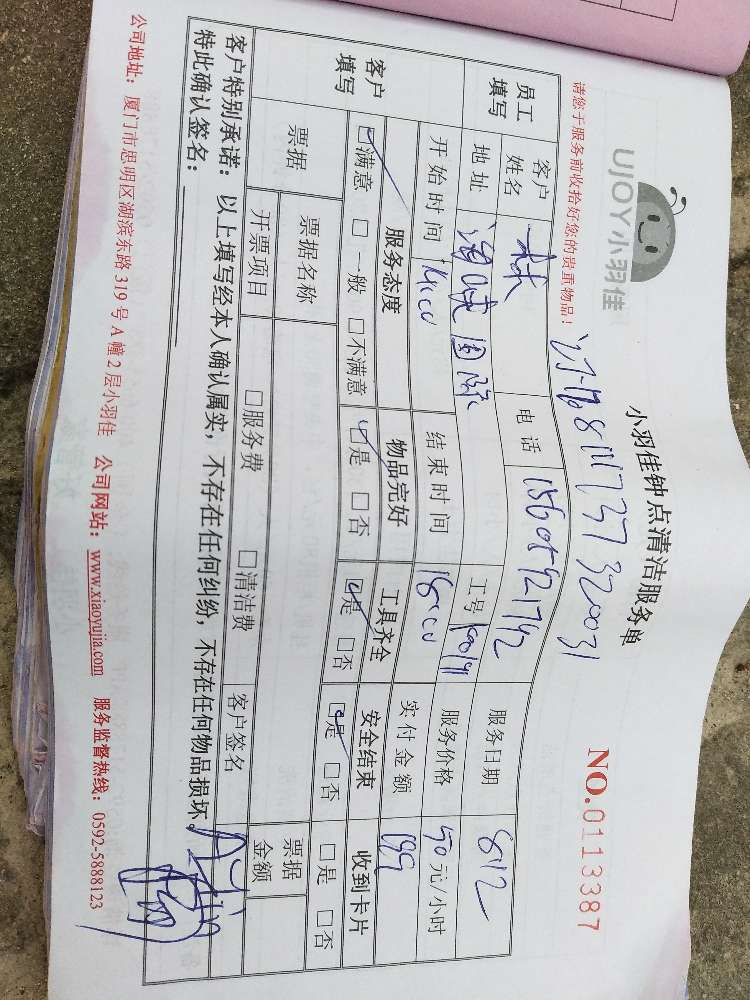 UJOY小羽佳
小羽佳钟点清洁服务单
NO.0113387
请您于服务前收拾好您的贵重物品！
员工填写 客户姓名 林 电话 服务日期 8.12
地址 国际 工号 服务价格 50元/小时
客户填写 开始时间 14:00 结束时间 18:00 实付金额 199
服务态度 物品完好 工具齐全 安全结束 收到卡片
☑满意 □一般 □不满意 ☑是 □否 ☑是 □否 ☑是 □否 □是 □否
票据 票据名称 票据金额
开票项目 □服务费 □清洁费 客户签名
客户特别承诺：以上填写经本人确认属实，不存在任何纠纷，不存在任何物品损坏。
特此确认签名：
公司地址：厦门市思明区湖滨东路319号A幢2层小羽佳 公司网站：www.xiaoyujia.com 服务监督热线：0592-5888123